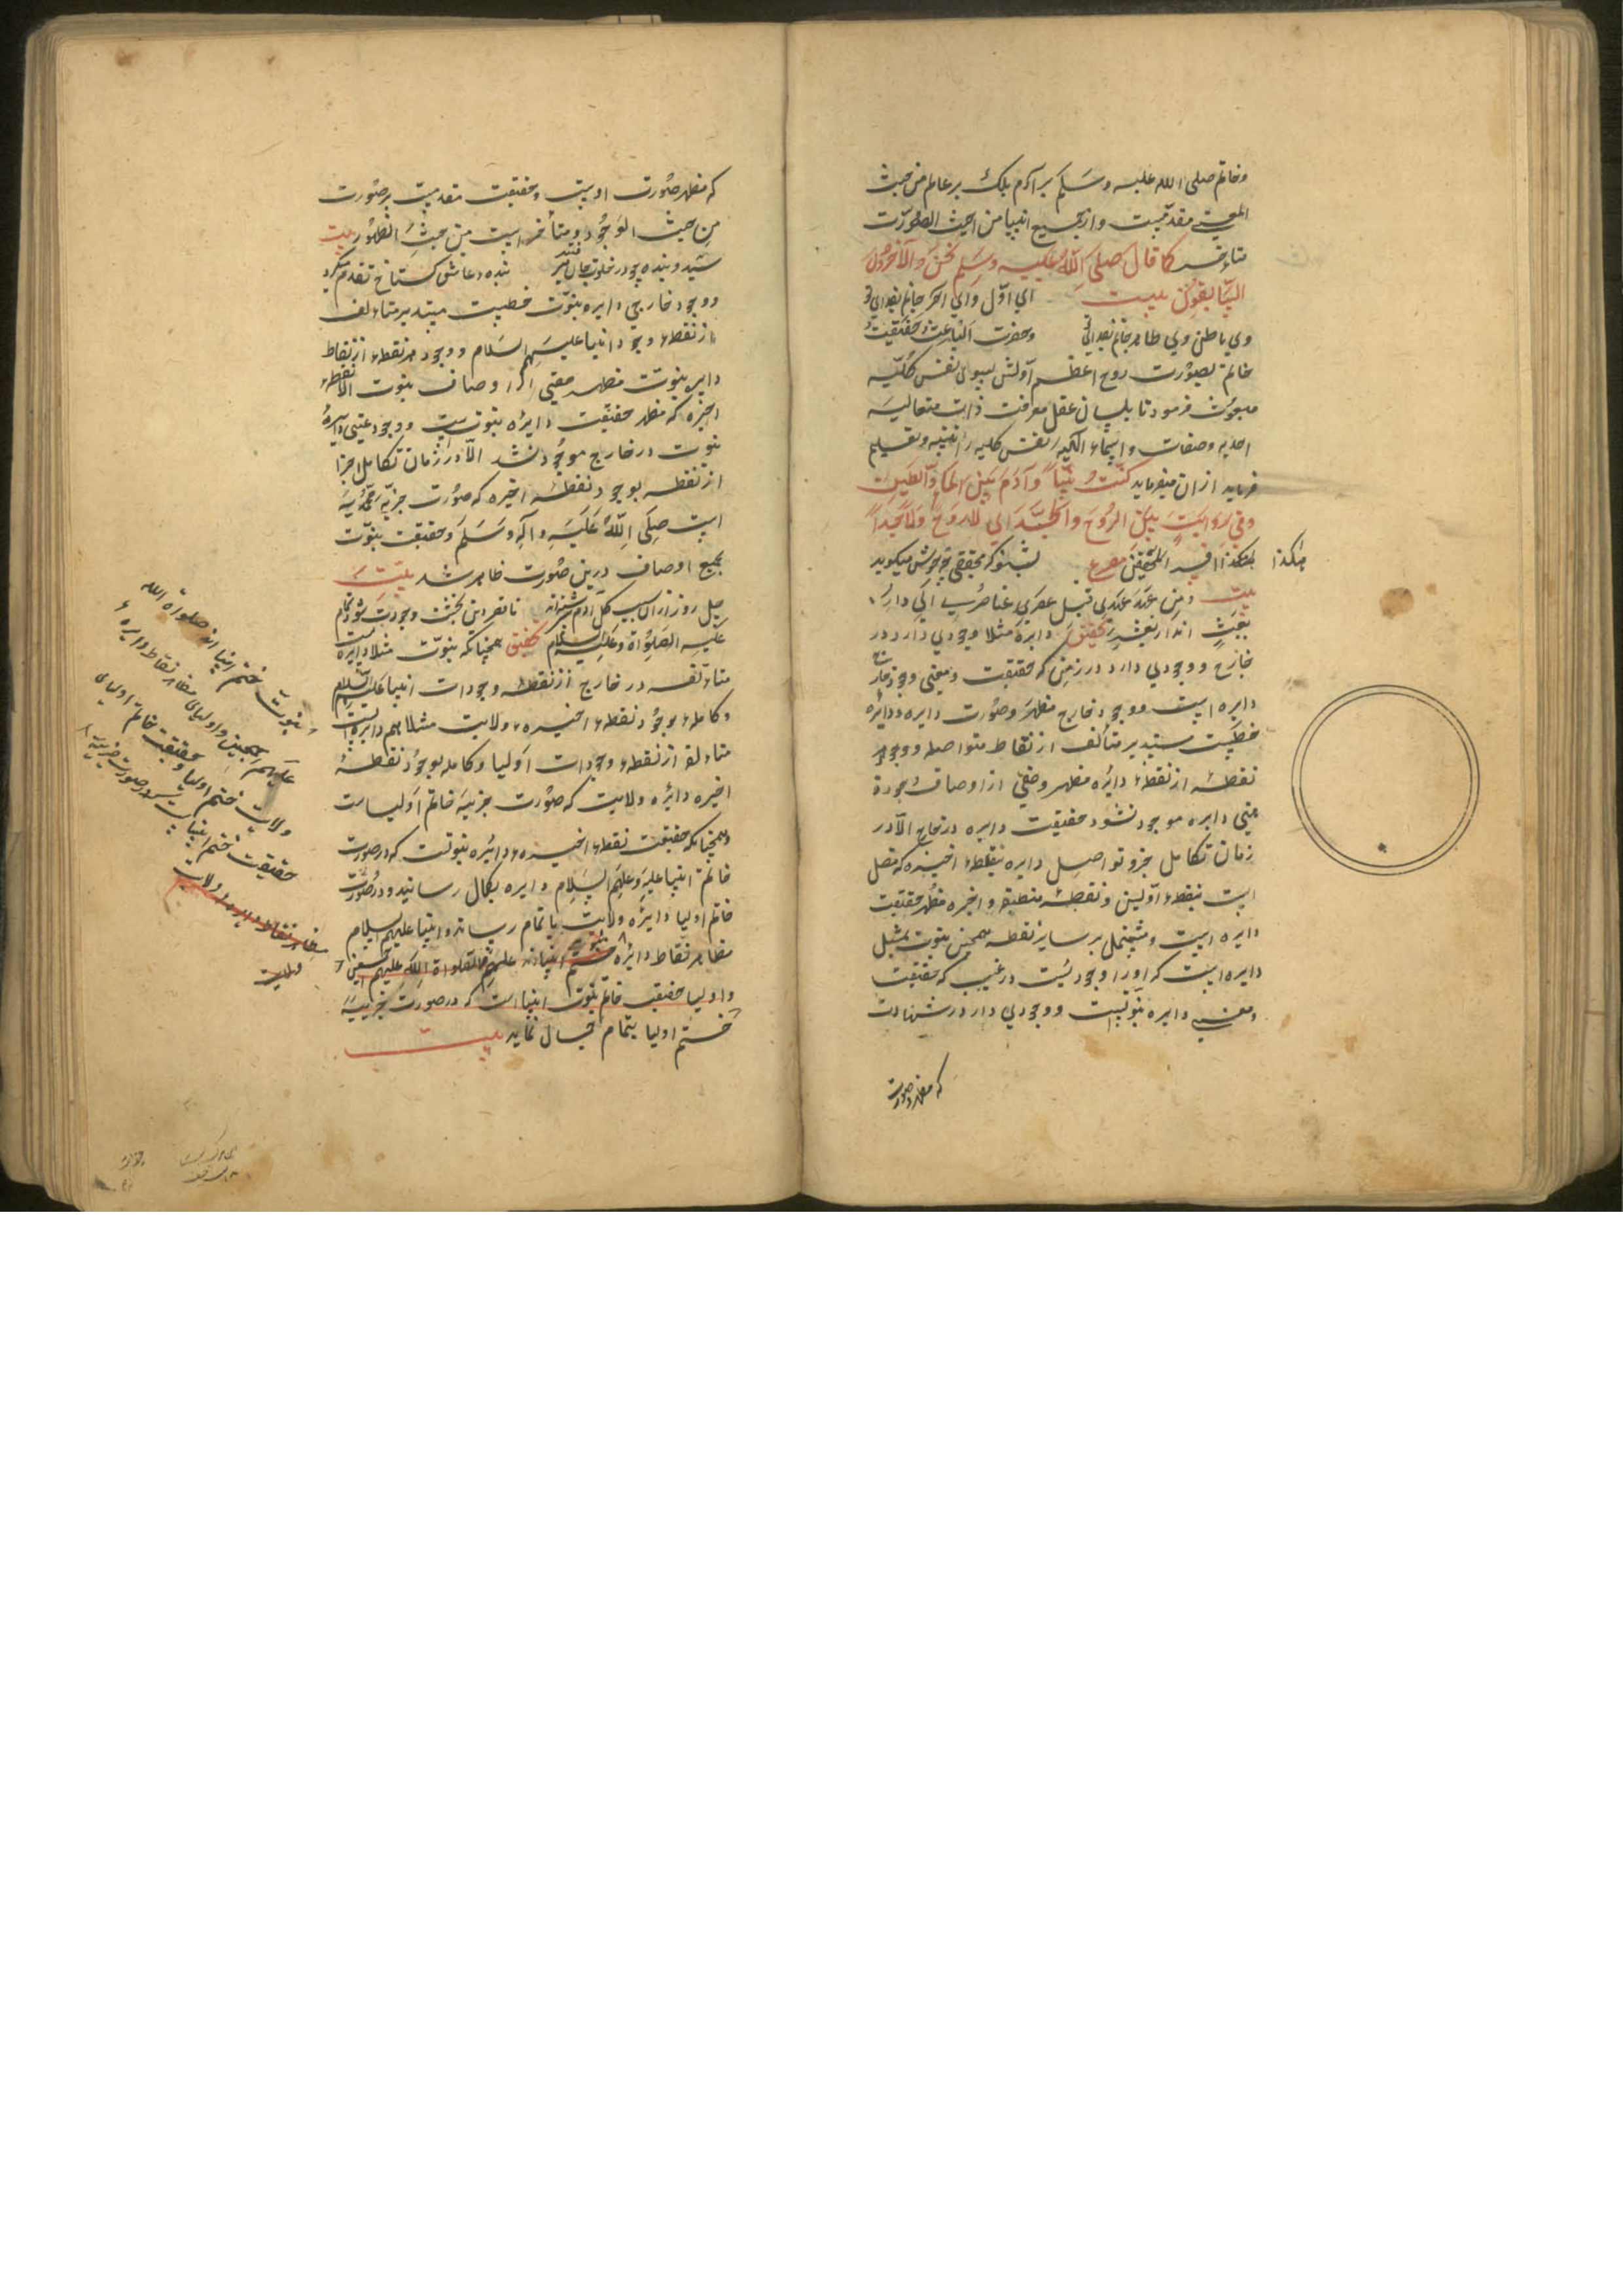 وخاتم صلی الله علیه وسلم بر آدم بلک بر عالم من حیث
المعنی مقدمست واز جمیع انبیا من حیث الصورت
متاخر کما قال صلی الله علیه وسلم نحن الآخرون
السابقون بیت ای اول وای آخر جانم بفدای تو
وی باطن وی ظاهر جانم بفدای تو وحضرت الهیت حقیقت
خاتم بصورت روح اعظم اولش بسوی نفس کلیه
مبعوث فرمود تا بلسان عقل معرفت ذات متعالیه
احدیه وصفات واسماء الهیه نفس کلیه را تنبیه وتعلیم
فرماید ازان میفرماید کنت نبیا وآدم بین الماء والطین
وفی روایت بین الروح والجسد ای لا روح ولا جسدا
هکذا افید المحققین مصرع بشنو که محققی چه خوش میکوید
هکذا
بیت ومن عهد عهدی قبل عصر عناصری الی دار
بعث انذار بعثه تحقیق دایره مثلا وجودی دارد در
خارج ووجودی دارد در ذهن که حقیقت ومعنی وجود خارج
دایره است ووجود خارج مظهر وصورت دایره ودایره
خطیست مستدیر متألف از نقاط متواصله ووجود هر
نقطه از نقطهء دائره مظهر وصفی از اوصاف وجود
عینی دایره موجود نشود حقیقت دایره در خارج الا در
زمان تکامل جزو تواصل دایره بنقطهء اخیره که متصل
است بنقطهء اولین ونقطهٔ منطبقه واخیره مظهر حقیقت
دایره است ومشتمل بر سایر نقطه همچنین نبوت بمثل
دایره است که او را وجودیست در غیب که حقیقت
ومعنی دایره نبوتست ووجودی دارد در شهادت
که مظهر وصورت
که مظهر صورت اوست وحقیقت مقدمست بر صورت
من حیث الوجود ومتأخر است من حیث الظهور بیت
سید وبنده چو در خلوت جان بنده وعاشق کستاخ تقدم میکرد
ووجود خارجی دایره نبوت خطیست مستدیر متاءلف
از نقطهء وجود انبیا علیهم السلام ووجود هر نقطه از نقاط
دایره نبوت مظهر معنی از اوصاف نبوت الا نقطهء
اخیره که مظهر حقیقت دایره نبوتست ووجود عینی دایرهٔ
نبوت در خارج موجود نشد الا در زمان تکامل اجزا
از نقطه بوجود نقطهٔ اخیره که صورت جزئیه محمدیه
است صلی الله علیه وآله وسلم وحقیقت نبوت
بجمیع اوصاف درین صورت ظاهر شد بیت
چل روز ازان سبب کل آدم سرشته اند تا قصر دین بخشت وجودت شود تمام
علیه الصلواة وعلیه السلام تحقیق همچنانکه نبوت مثلا دایره است
متاءلفه در خارج از نقطهٔ وجودات انبیا علیهم السلام
وکامله بوجود نقطهء اخیره ولایت مثلا هم دایره است
متاءلفه از نقطهء وجودات اولیا وکامله بوجود نقطهٔ
اخیره دائره ولایت که صورت جزئیه خاتم اولیاست
وهمچنانکه حقیقت نقطهء اخیره دائره نبوتست که در صورت
خاتم انبیا علیه وعلیهم السلام دایره بکمال رسانید ودر صورت
خاتم اولیا دایره ولایت باتمام رساند وانبیا علیهم السلام
مظاهر نقاط دائره نبوت ختم انبیا اند علیهم صلواة الله علیهم اجمعین
واولیا حقیقت خاتم نبوت انبیا است که در صورت جزئیه
ختم اولیا بتمام جمال نماید بیت
نبوت ختم انبیا اند صلواة الله
علیهم اجمعین واولیا مظاهر نقاط دایره
ولایت ختم اولیا وحقیقت خاتم اولیا
حقیقت ختم انبیاست که در صورت جزئیه
مظاهر نقاط دایره ولایت
ولایت